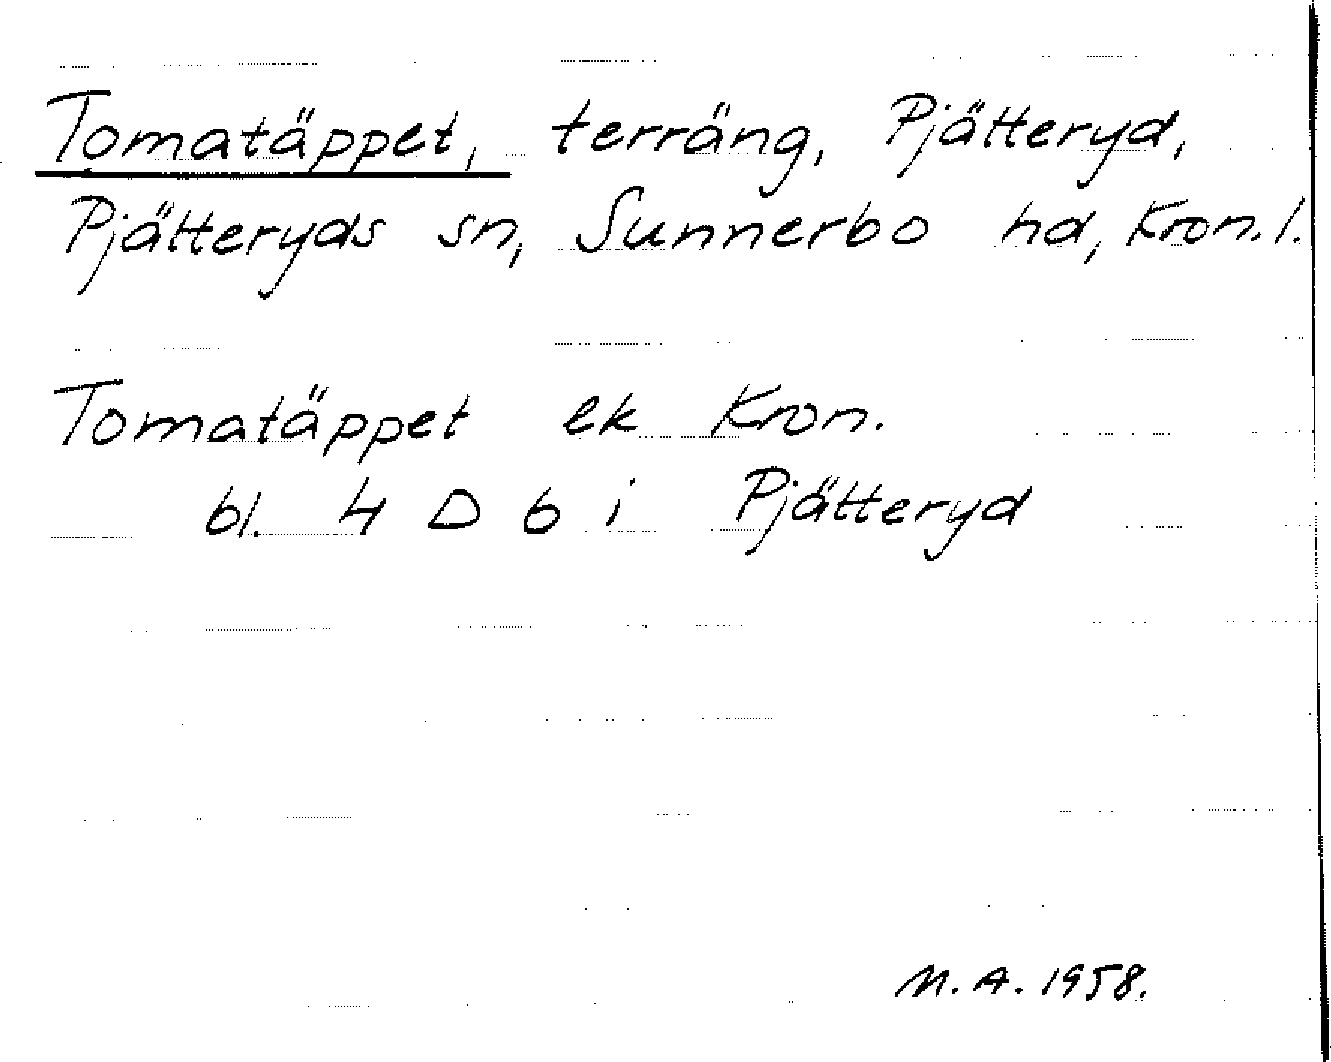 Tomatäppet, terräng, Pjätteryd,
Pjätteryds sn, Sunnerbo hd, Kron. l.
Tomatäppet ek Kron.
bl. 4 D 6 i Pjätteryd
M. A. 1958.